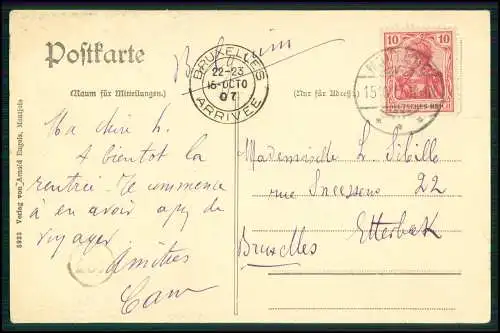 Postkarte
Belgium
BRUXELLES
22-23
15-OCTO
07
ARRIVÉE
10 10
DEUTSCHES REICH
(Raum für Mitteilungen.)
(Nur für Adresse)
Ma chère L.
A bientôt la
rentrée. Je commence
à en avoir assez de
voyager
Amitiés
Mademoiselle L. Sibille
rue 22
Etterbeek
Bruxelles
5923 Verlag von Arnold Engels, Montjoie